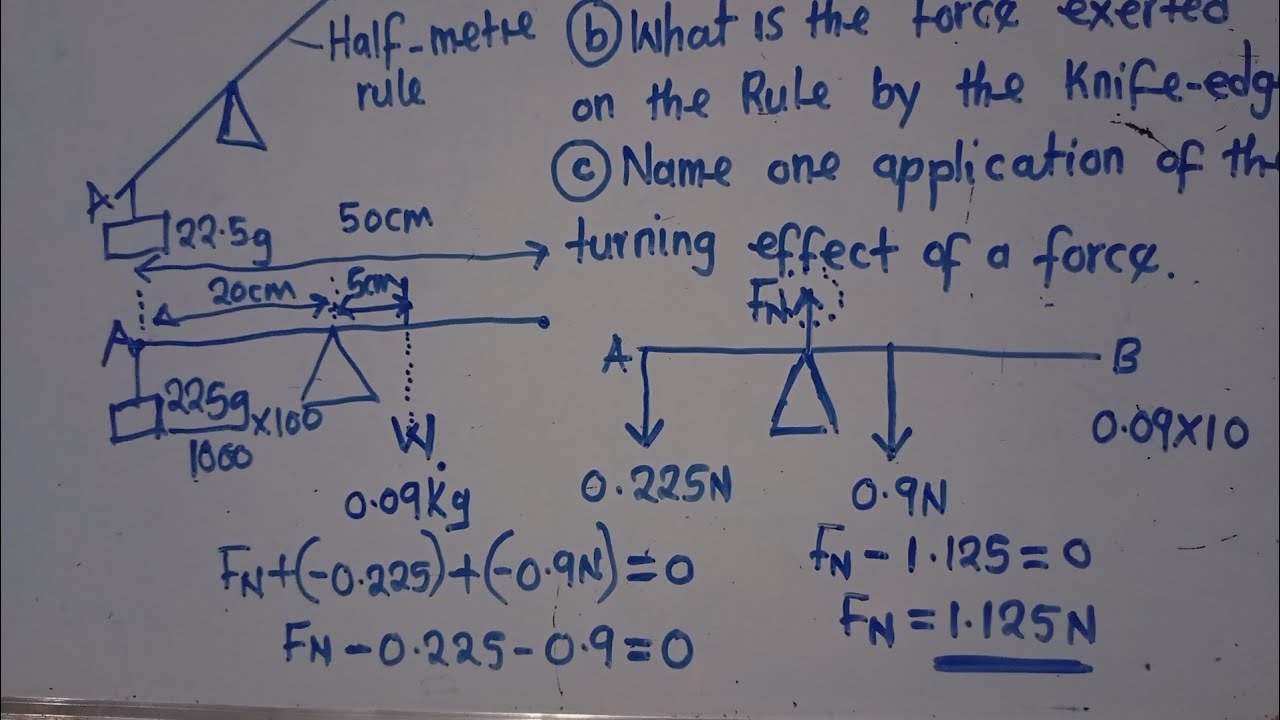 Half-metre
rule
(b) What is the force exerted
on the Rule by the Knife-edg
(c) Name one application of the
turning effect of a force.
A
22.5g
50cm
20cm
5cm
A
225g
1000
×100
W.
0.09Kg
FN
A
B
0.225N
0.9N
0.09×10
FN+(-0.225)+(-0.9N)=0
FN-0.225-0.9=0
FN-1.125=0
FN=1.125N